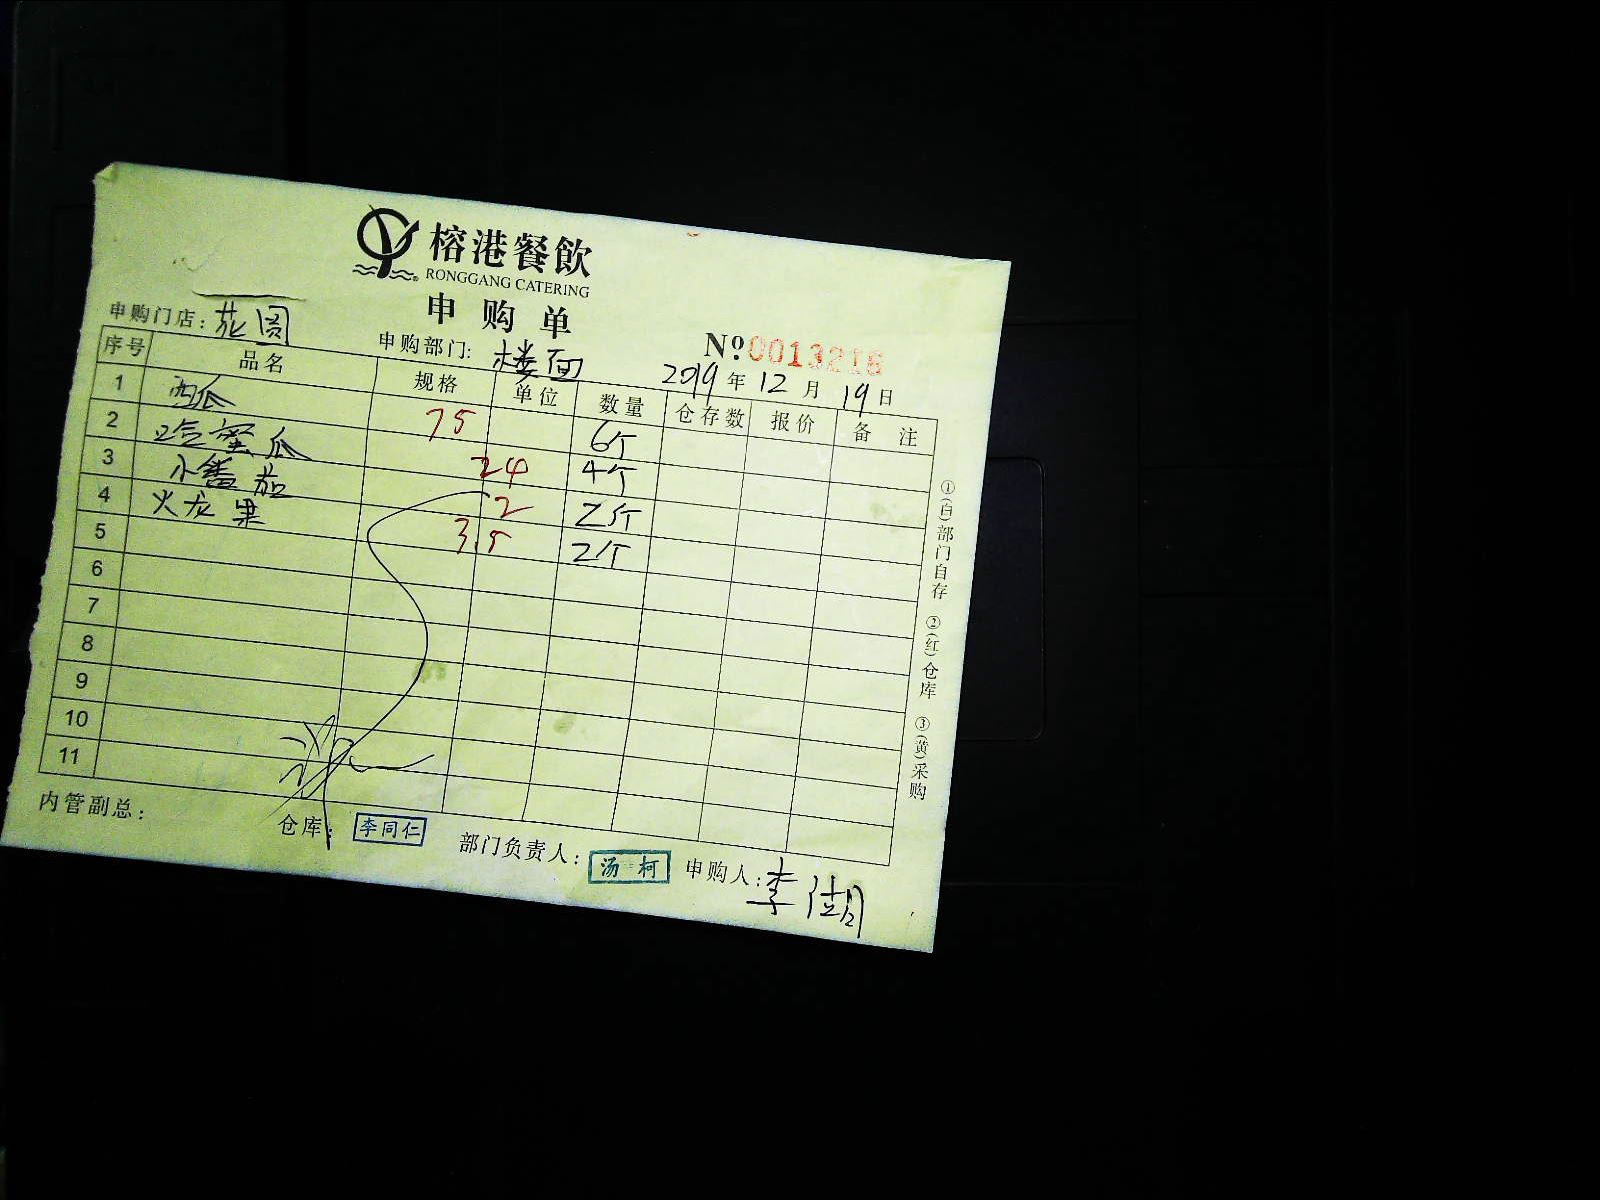 榕港餐飲
RONGGANG CATERING
申购单
申购门店: 花园
申购部门: 楼面
Nº 0013216
2019年12月19日
序号 品名 规格 单位 数量 仓存数 报价 备 注
1 西瓜 75 6个
2 哈蜜瓜 24 4个
3 小番茄 2 2斤
4 火龙果 3.5 2个
5
6
7
8
9
10
11
①(白)部门自存 ②(红)仓库 ③(黄)采购
内管副总:
仓库: 李同仁
部门负责人: 汤柯
申购人: 李